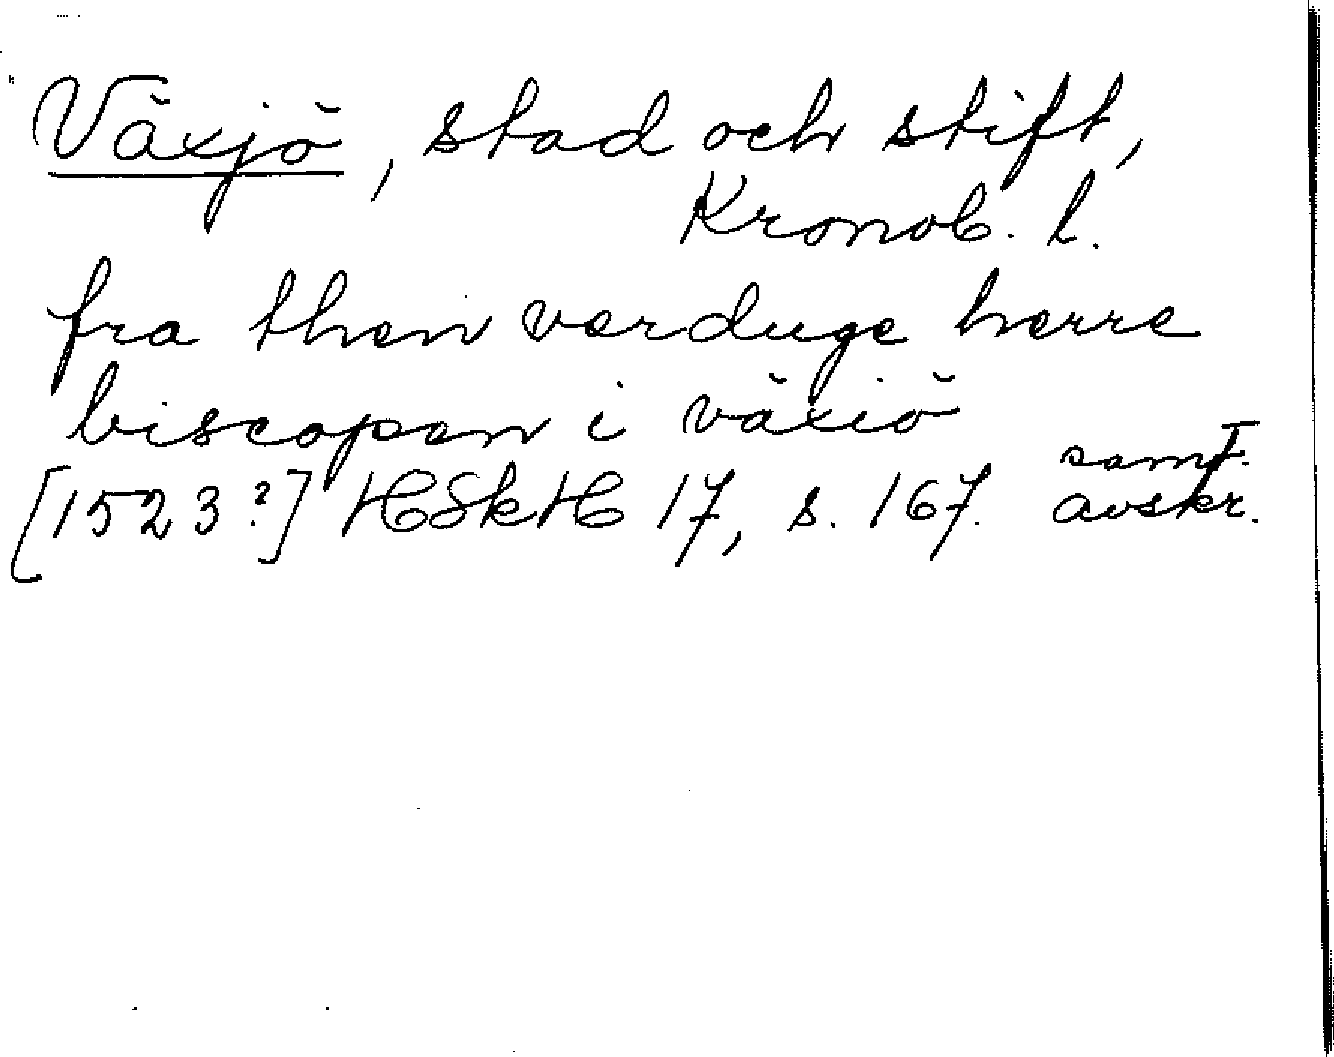 Växjö, stad och stift,
Kronob. l.
fra then verduge herre
biscopen i växiö
[1523?] HSkH 17, s. 167. samt.
avskr.